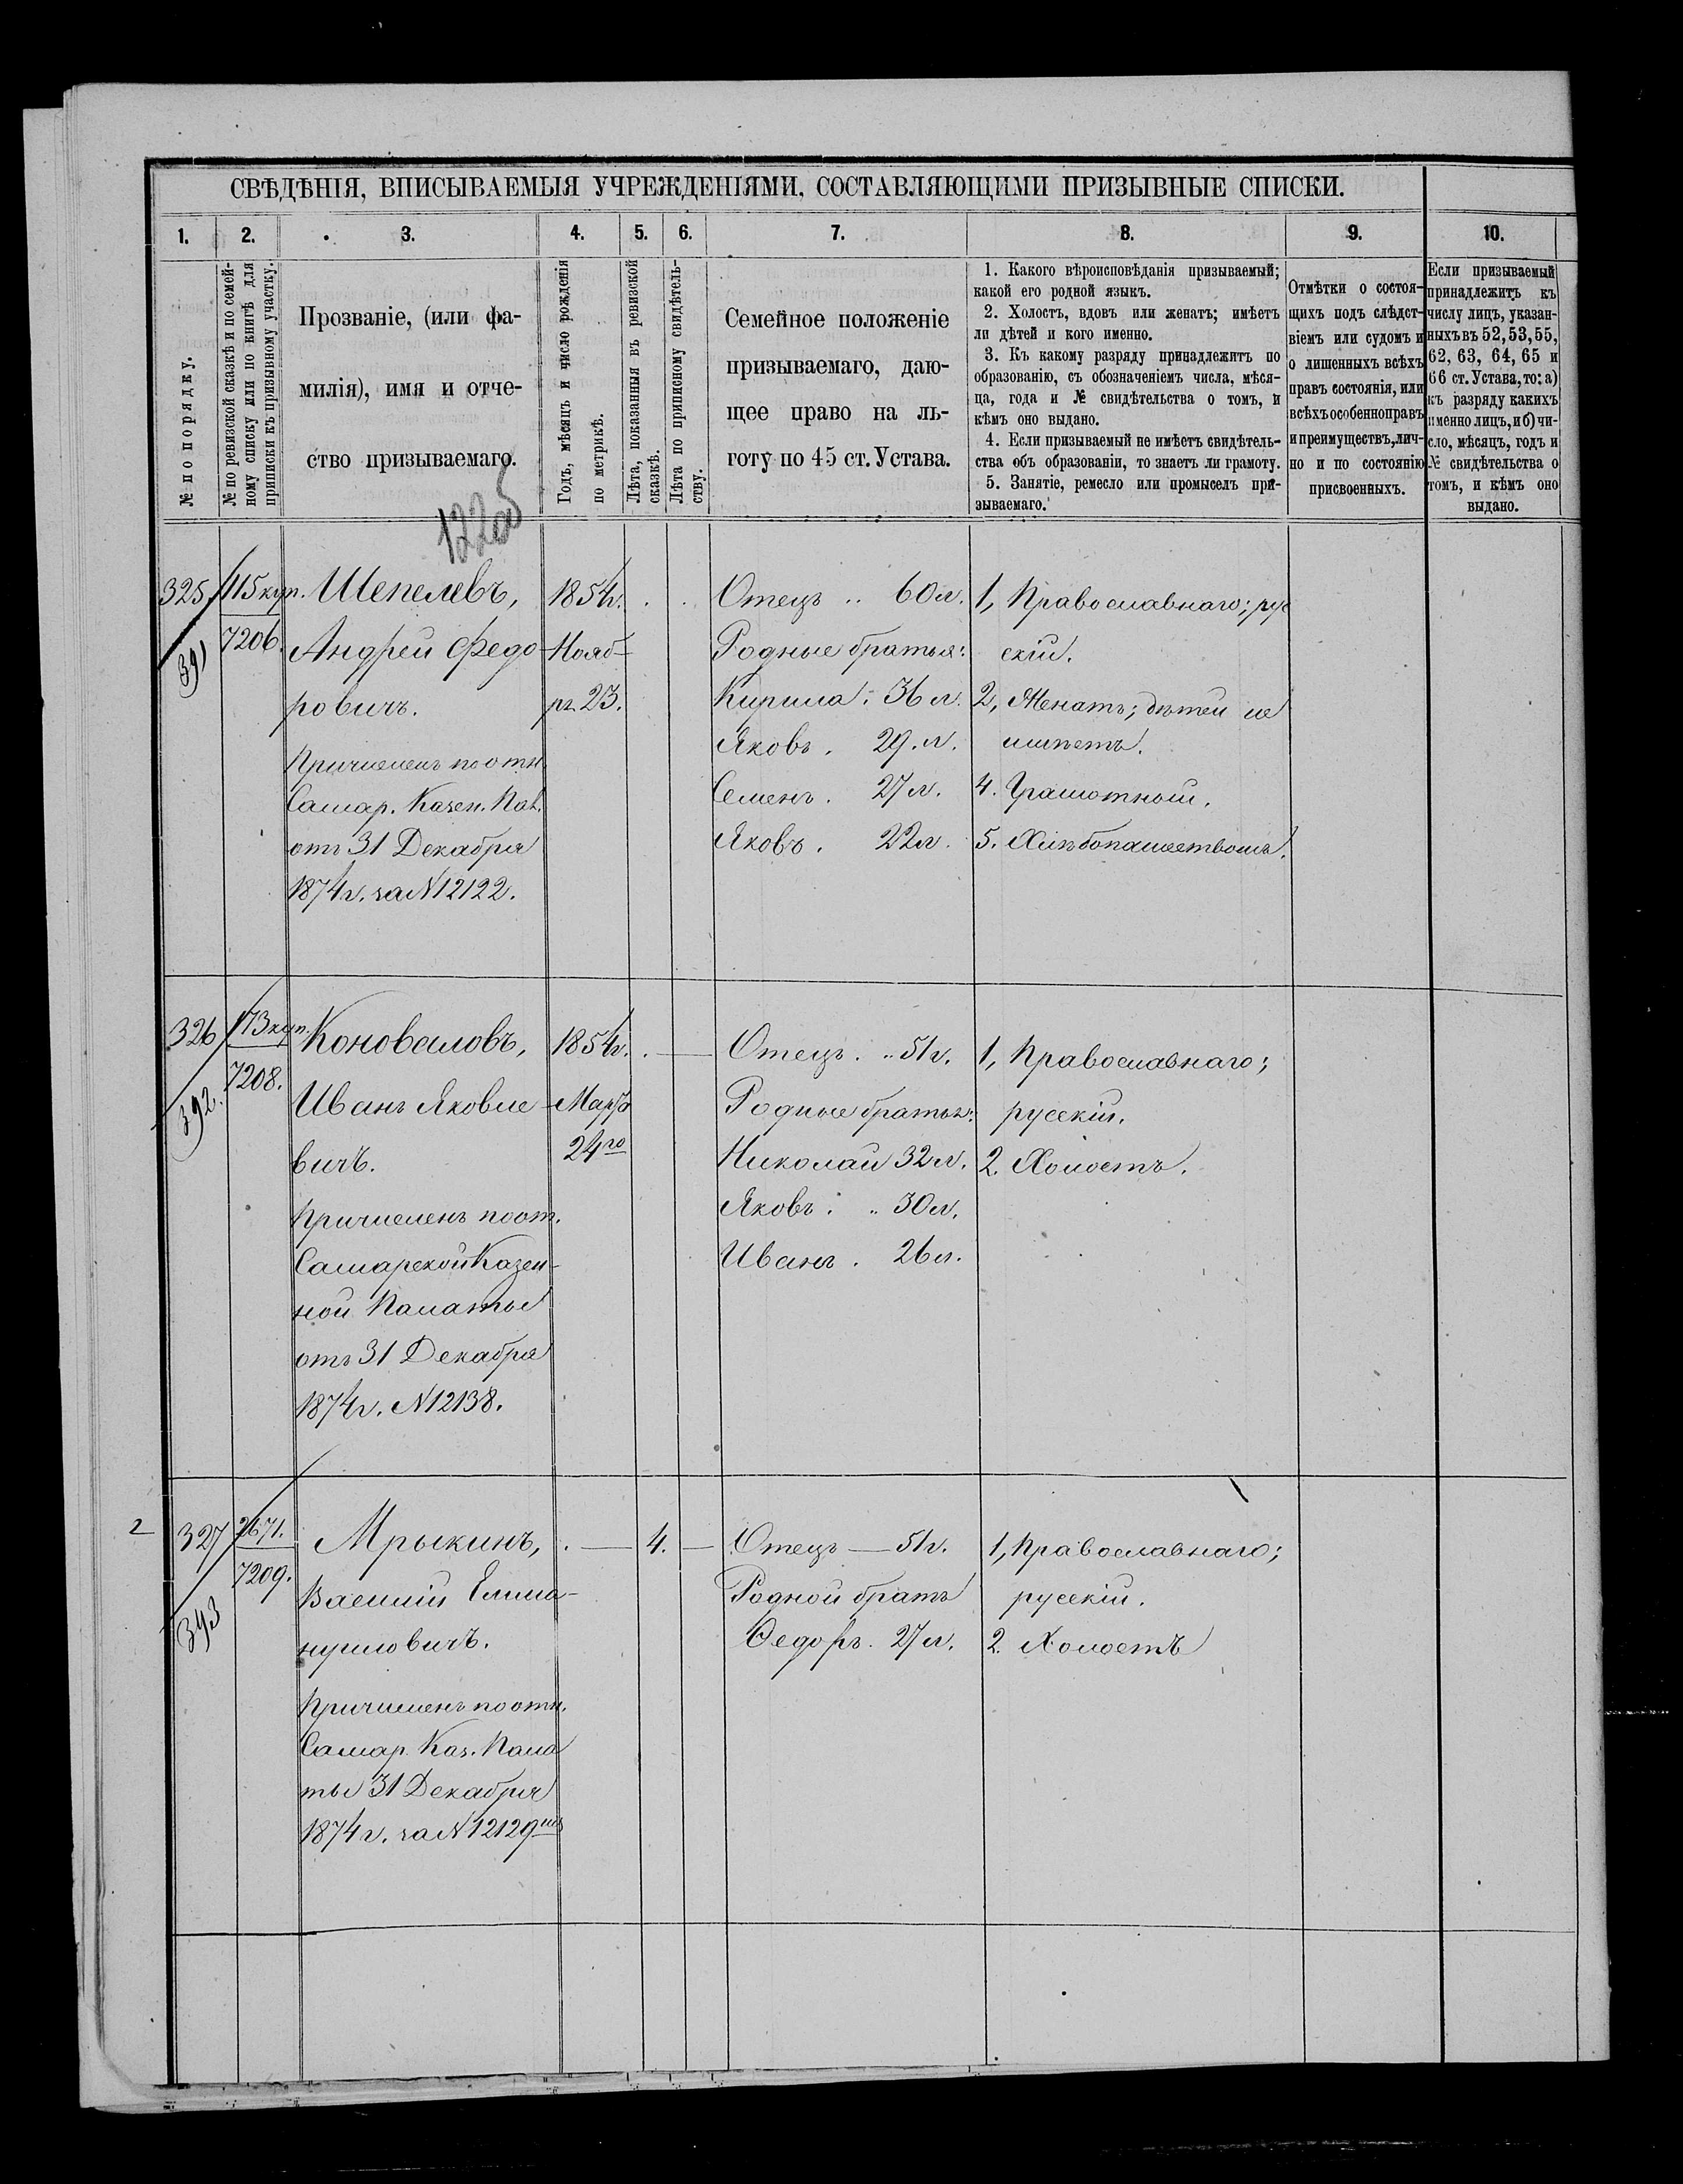 СВѢДѢНІЯ, ВПИСЫВАЕМЫЯ УЧРЕЖДЕНІЯМИ, СОСТАВЛЯЮЩИМИ ПРИЗЫВНЫЕ СПИСКИ.
1. 2. 3. 4. 5. 6. 7. 8. 9. 10.
№ по порядку.
№ по ревизской сказкѣ и по семей-
ному списку или по книгѣ для
приписки къ призывному участку.
Прозваніе, (или фа-
милія), имя и отче-
ство призываемаго.
Годъ, мѣсяцъ и число рожденія
по метрикѣ.
Лѣта, показанныя въ ревизской
сказкѣ.
Лѣта по приписному свидѣтель-
ству.
Семейное положеніе
призываемаго, даю-
щее право на ль-
готу по 45 ст. Устава.
1. Какого вѣроисповѣданія призываемый;
какой его родной языкъ.
2. Холостъ, вдовъ или женатъ; имѣетъ
ли дѣтей и кого именно.
3. Къ какому разряду принадлежитъ по
образованію, съ обозначеніемъ числа, мѣся-
ца, года и № свидѣтельства о томъ, и
кѣмъ оно выдано.
4. Если призываемый не имѣетъ свидѣтель-
ства объ образованіи, то знаетъ ли грамоту.
5. Занятіе, ремесло или промыселъ при-
зываемаго.
Отмѣтки о состоя-
щихъ подъ слѣдст-
віемъ или судомъ и
о лишенныхъ всѣхъ
правъ состоянія, или
всѣхъ особенно правъ
и преимуществъ, лич-
но и по состоянію
присвоенныхъ.
Если призываемый
принадлежитъ къ
числу лицъ, указан-
ныхъ въ 52, 53, 55,
62, 63, 64, 65 и
66 ст. Устава, то: а)
къ разряду какихъ
именно лицъ, и б) чи-
сло, мѣсяцъ, годъ и
№ свидѣтельства о
томъ, и кѣмъ оно
выдано.
325
391
115 куп.
7206.
Шепелевъ,
Андрей Федо-
ровичъ.
Причисленъ по отн.
Самар. Казен. Пал.
отъ 31 Декабря
1874 г. за N 12122.
1854 г.
Нояб-
рь 23.
Отецъ .. 60 л.
Родные братья:
Кирила. 36 л.
Яковъ. 29. л.
Семенъ. 27 л.
Яковъ. 22 л.
1, Православнаго; рус
скій.
2, Женатъ; дѣтей не
имѣетъ.
4. Грамотный.
5. Хлѣбопашествомъ.
326
392.
173 куп.
7208.
Коноваловъ,
Иванъ Яковле-
вичъ.
Причисленъ по от.
Самарской Казен-
ной Палаты
отъ 31 Декабря
1874 г. N 12138.
1854 г.
Мартъ
24го
Отецъ. .. 51 г.
Родные братья:
Николай 32 л.
Яковъ. .. 30 л.
Иванъ. 26 л.
1, Православнаго;
русскій.
2. Холостъ.
2
327
393
2671.
7209.
Мрыкинъ,
Василій Емма-
нуиловичъ.
Причисленъ по отн.
Самар. Каз. Пала
ты 31 Декабря
1874 г. за N 12129
4.
Отецъ — 51 г.
Родной братъ
Федоръ. 27 л.
1, Православнаго;
русскій.
2. Холостъ